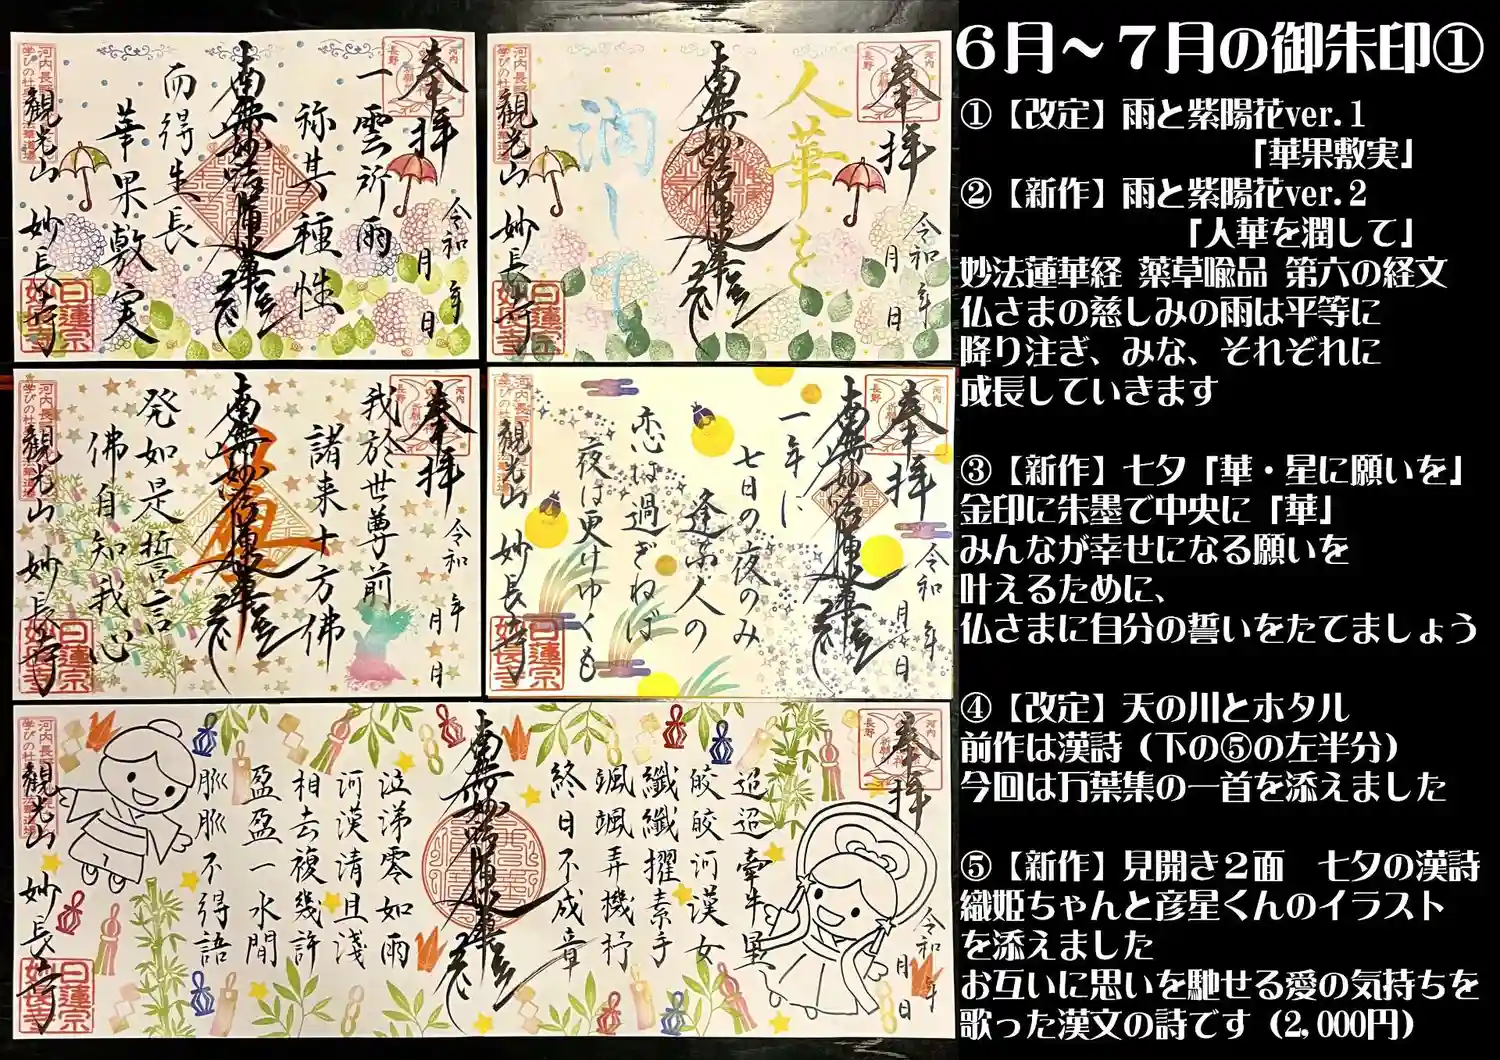 6月～7月の御朱印①
①【改定】雨と紫陽花ver.1
「華果敷実」
②【新作】雨と紫陽花ver.2
「人華を潤して」
妙法蓮華経 薬草喩品 第六の経文
仏さまの慈しみの雨は平等に
降り注ぎ、みな、それぞれに
成長していきます
③【新作】七夕「華・星に願いを」
金印に朱墨で中央に「華」
みんなが幸せになる願いを
叶えるために、
仏さまに自分の誓いをたてましょう
④【改定】天の川とホタル
前作は漢詩（下の⑤の左半分）
今回は万葉集の一首を添えました
⑤【新作】見開き２面　七夕の漢詩
織姫ちゃんと彦星くんのイラスト
を添えました
お互いに思いを馳せる愛の気持ちを
歌った漢文の詩です（2,000円）
奉拝
令和 年 月 日
一雲所雨
称其種性
南無妙法蓮華経
而得生長
華果敷実
観光山 妙長寺
日蓮宗
妙長寺
奉拝
令和 年 月 日
人華を
南無妙法蓮華経
潤して
観光山 妙長寺
日蓮宗
妙長寺
奉拝
令和 年 月 日
我於世尊前
諸来十方佛
南無妙法蓮華経
発如是誓言
佛自知我心
観光山 妙長寺
日蓮宗
妙長寺
奉拝
令和 年 月 日
南無妙法蓮華経
一年に
七日の夜のみ
逢ふ人の
恋は過ぎねば
夜は更けゆくも
観光山 妙長寺
日蓮宗
妙長寺
奉拝
令和 年 月 日
迢迢牽牛星
皎皎河漢女
纖纖擢素手
颯颯弄機杼
終日不成章
南無妙法蓮華経
泣涕零如雨
河漢清且淺
相去複幾許
盈盈一水間
脈脈不得語
観光山 妙長寺
日蓮宗
妙長寺